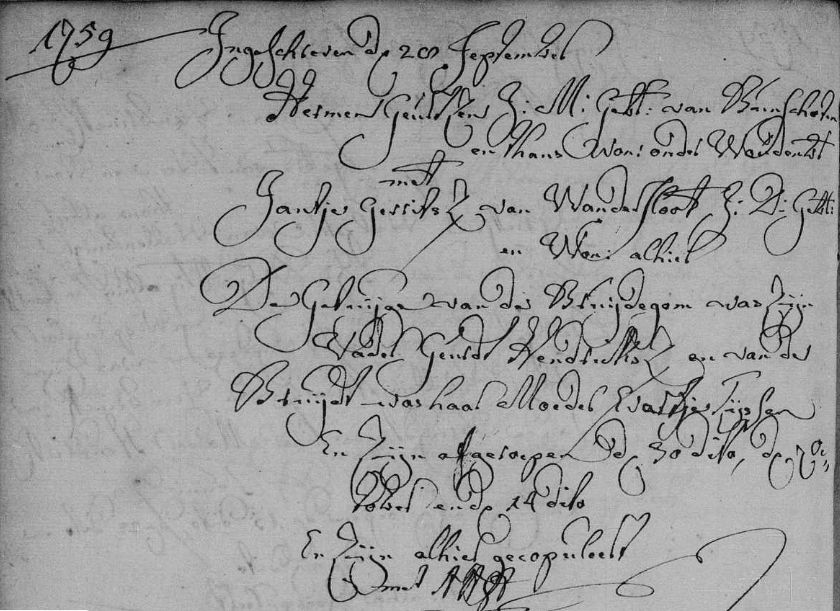 1759
Ingeschreven de 20 September
Harmen Geurtsen J: M: Geb: van Barnschoten
en thans Won: onder Woudenb:
met
Jantje Gerrits van Wandersloot J: D: Geb:
en Won: alhier
De Getuijge van de Bruijdegom was zijn
Vader Geurdt Hendricks en van de
Bruijdt was haar Moeder Evartje Tijssen
En zijn afgeroepen de 30 dito, de 7e
8ber en de 14 dito
En zijn alhier gecopuleert
met